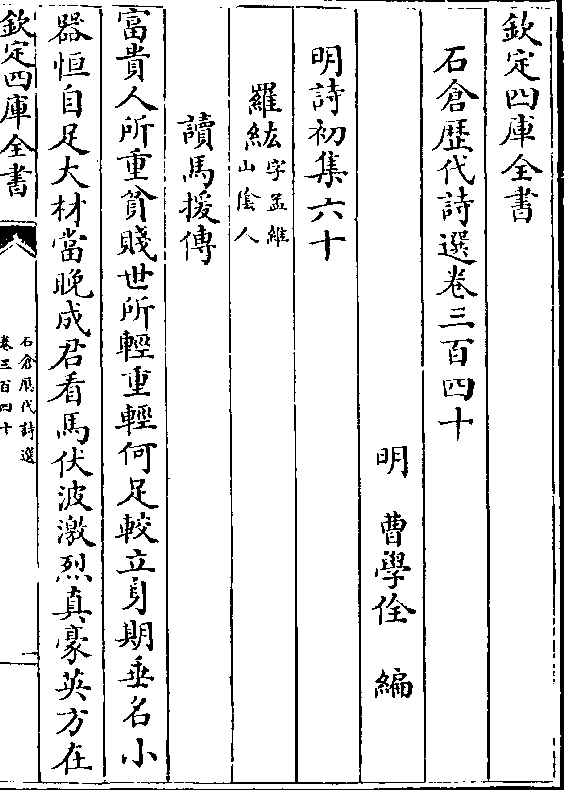 欽定四庫全書
石倉歷代詩選卷三百四十
明　曹學佺　編
明詩初集六十
羅紘字孟維
山陰人
讀馬援傳
富貴人所重貧賤世所輕重輕何足較立身期垂名小
器恒自足大材當晚成君看馬伏波激烈真豪英方在
欽定四庫全書
石倉歷代詩選
卷三百四十
一